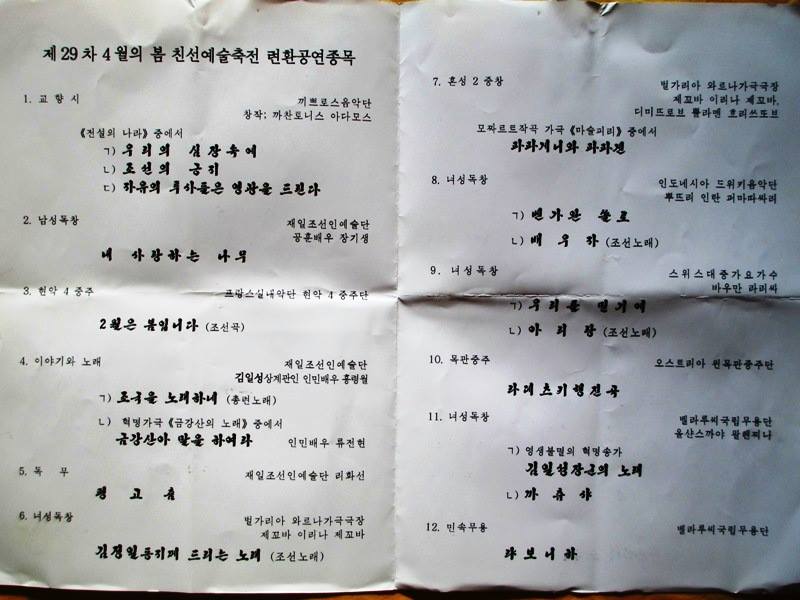 제 29 차 4 월의 봄 친선예술축전 련환공연종목
1. 교 향 시 끼쁘로스음악단
창작; 까찬토니스 아다모스
《전설의 나라》 중에서
ㄱ) 우 리 의 심 장 속 에
ㄴ) 조 선 의 긍 지
ㄷ) 자유의 투사들은 영광을 드린다
2. 남성독창 재일조선인예술단
공훈배우 장기생
내 사 랑 하 는 나 무
3. 현악 4 중주 프랑스실내악단 현악 4 중주단
2월은 봄입니다 (조선곡)
4. 이야기와 노래 재일조선인예술단
김일성상계관인 인민배우 홍령월
ㄱ) 조국을 노래하네 (총련노래)
ㄴ) 혁명가극 《금강산의 노래》 중에서
금강산아 말을 하여라 인민배우 류전현
5. 독 무 재일조선인예술단 리화선
평 고 춤
6. 녀성독창 벌가리아 와르나가극극장
제꼬바 이리나 제꼬바
김정일동지께 드리는 노래 (조선노래)
7. 혼성 2 중창 벌가리아 와르나가극극장
제꼬바 이리나 제꼬바,
디미뜨로브 쁠라멘 흐리쓰또브
모짜르트작곡 가극 《마술피리》 중에서
파파게나와 파파겐
8. 녀성독창 인도네시아 드위키음악단
뿌뜨리 인탄 퍼마따싸리
ㄱ) 벤가완 쏠로
ㄴ) 배 우 자 (조선노래)
9. 녀성독창 스위스대중가요가수
바우만 라리싸
ㄱ) 우리를 믿기에
ㄴ) 아 리 랑 (조선노래)
10. 목관중주 오스트리아 윈목관중주단
라데츠키행진곡
11. 녀성독창 벨라루씨국립무용단
울산스까야 왈렌찌나
ㄱ) 영생불멸의 혁명송가
김일성장군의 노래
ㄴ) 까 츄 샤
12. 민속무용 벨라루씨국립무용단
랴 보 니 하